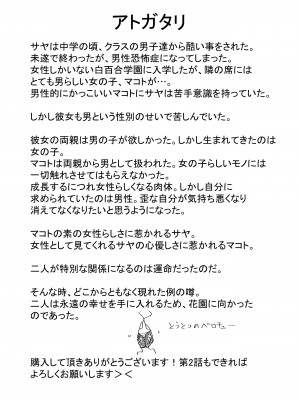 アトガタリ
サヤは中学の頃、クラスの男子達から酷い事をされた。
未遂で終わったが、男性恐怖症になってしまった。
女性しかいない白百合学園に入学したが、隣の席には
とても男らしい女の子、マコトが…。
男性的にかっこいいマコトにサヤは苦手意識を持っていた。
しかし彼女も男という性別のせいで苦しんでいた。
彼女の両親は男の子が欲しかった。しかし生まれてきたのは
女の子。
マコトは両親から男として扱われた。女の子らしいモノには
一切触れさせてはもらえなかった。
成長するにつれ女性らしくなる肉体。しかし自分に
求められていたのは男性。歪な自分が気持ち悪くなり
消えてなくなりたいと思うようになった。
マコトの素の女性らしさに惹かれるサヤ。
女性として見てくれるサヤの心優しさに惹かれるマコト。
二人が特別な関係になるのは運命だったのだ。
そんな時、どこからともなく現れた例の噂。
二人は永遠の幸せを手に入れるため、花園に向かった
のであった。
とうとつのベロチュー
購入して頂きありがとうございます!第2話もできれば
よろしくお願いします><